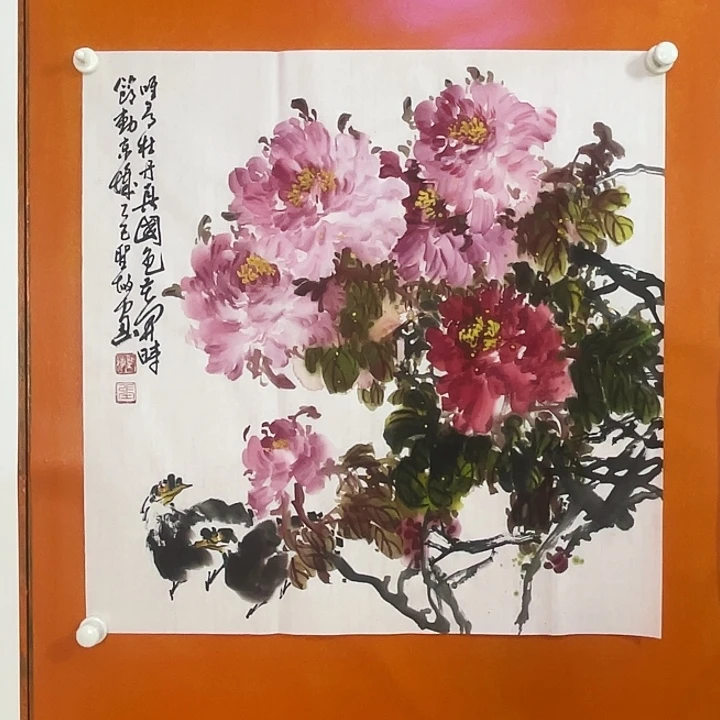 唯有牡丹真國色花開時
節動京城乙巳畫